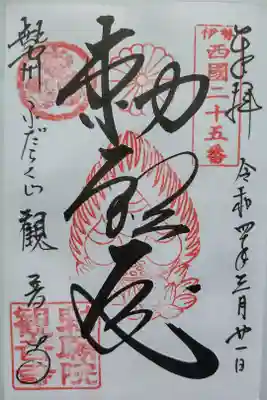 奉拝
令和四年三月廿一日
伊勢
西國二十五番
勢州 ふだらく山 觀音寺
勅願院
観音寺